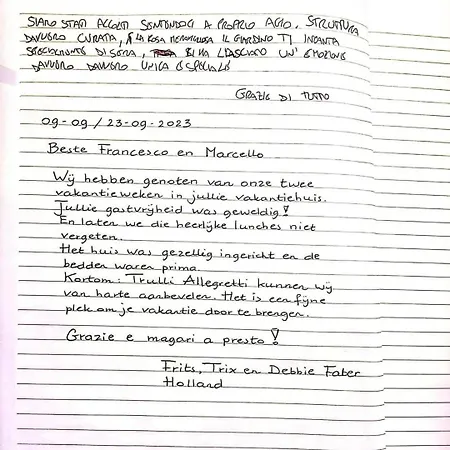 SIAMO STATI ACCOLTI SENTENDOCI A PROPRIO AGIO. STRUTTURA
DAVVERO CURATA, LA COSA MERAVIGLIOSA IL GIARDINO TI INCANTA
SPECIALMENTE DI SERA, CI HA LASCIATO UN' EMOZIONE
DAVVERO DAVVERO UNICA E SPECIALE
GRAZIE DI TUTTO
09-09/23-09-2023
Beste Francesco en Marcello
Wij hebben genoten van onze twee
vakantieweken in jullie vakantiehuis.
Jullie gastvrijheid was geweldig!
En laten we die heerlijke lunches niet
vergeten.
Het huis was gezellig ingericht en de
bedden waren prima.
Kortom: Trulli Allegretti kunnen wij
van harte aanbevelen. Het is een fijne
plek om je vakantie door te brengen.
Grazie e magari a presto!
Frits, Trix en Debbie Faber
Holland